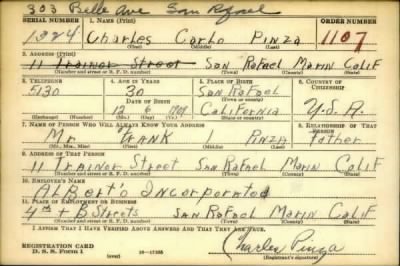 303 Belle Ave San Rafael
SERIAL NUMBER 1. NAME (Print) ORDER NUMBER
1924 Charles Carlo Pinza 1107
(First) (Middle) (Last)
2. ADDRESS (Print)
11 Trainor Street San Rafael Marin Calif
(Number and street or R. F. D. number) (Town) (County) (State)
3. TELEPHONE 4. AGE IN YEARS 5. PLACE OF BIRTH 6. COUNTRY OF CITIZENSHIP
5130 30 San Rafael
DATE OF BIRTH (Town or county)
12 6 California U.S.A.
(Mo.) (Day) (Yr.) (State or country)
7. NAME OF PERSON WHO WILL ALWAYS KNOW YOUR ADDRESS 8. RELATIONSHIP OF THAT PERSON
Mr. Frank Pinza Father
(Mr., Mrs., Miss) (First) (Middle) (Last)
9. ADDRESS OF THAT PERSON
11 Trainor Street San Rafael Marin Calif
(Number and street or R. F. D. number) (Town) (County) (State)
10. EMPLOYER'S NAME
Albert's Incorporated
11. PLACE OF EMPLOYMENT OR BUSINESS
4th & B Streets San Rafael Marin Calif
(Number and street or R. F. D. number) (Town) (County) (State)
I AFFIRM THAT I HAVE VERIFIED ABOVE ANSWERS AND THAT THEY ARE TRUE.
Charles Pinza
REGISTRATION CARD
D. S. S. FORM 1 (over) 16-17105 (Registrant's signature)